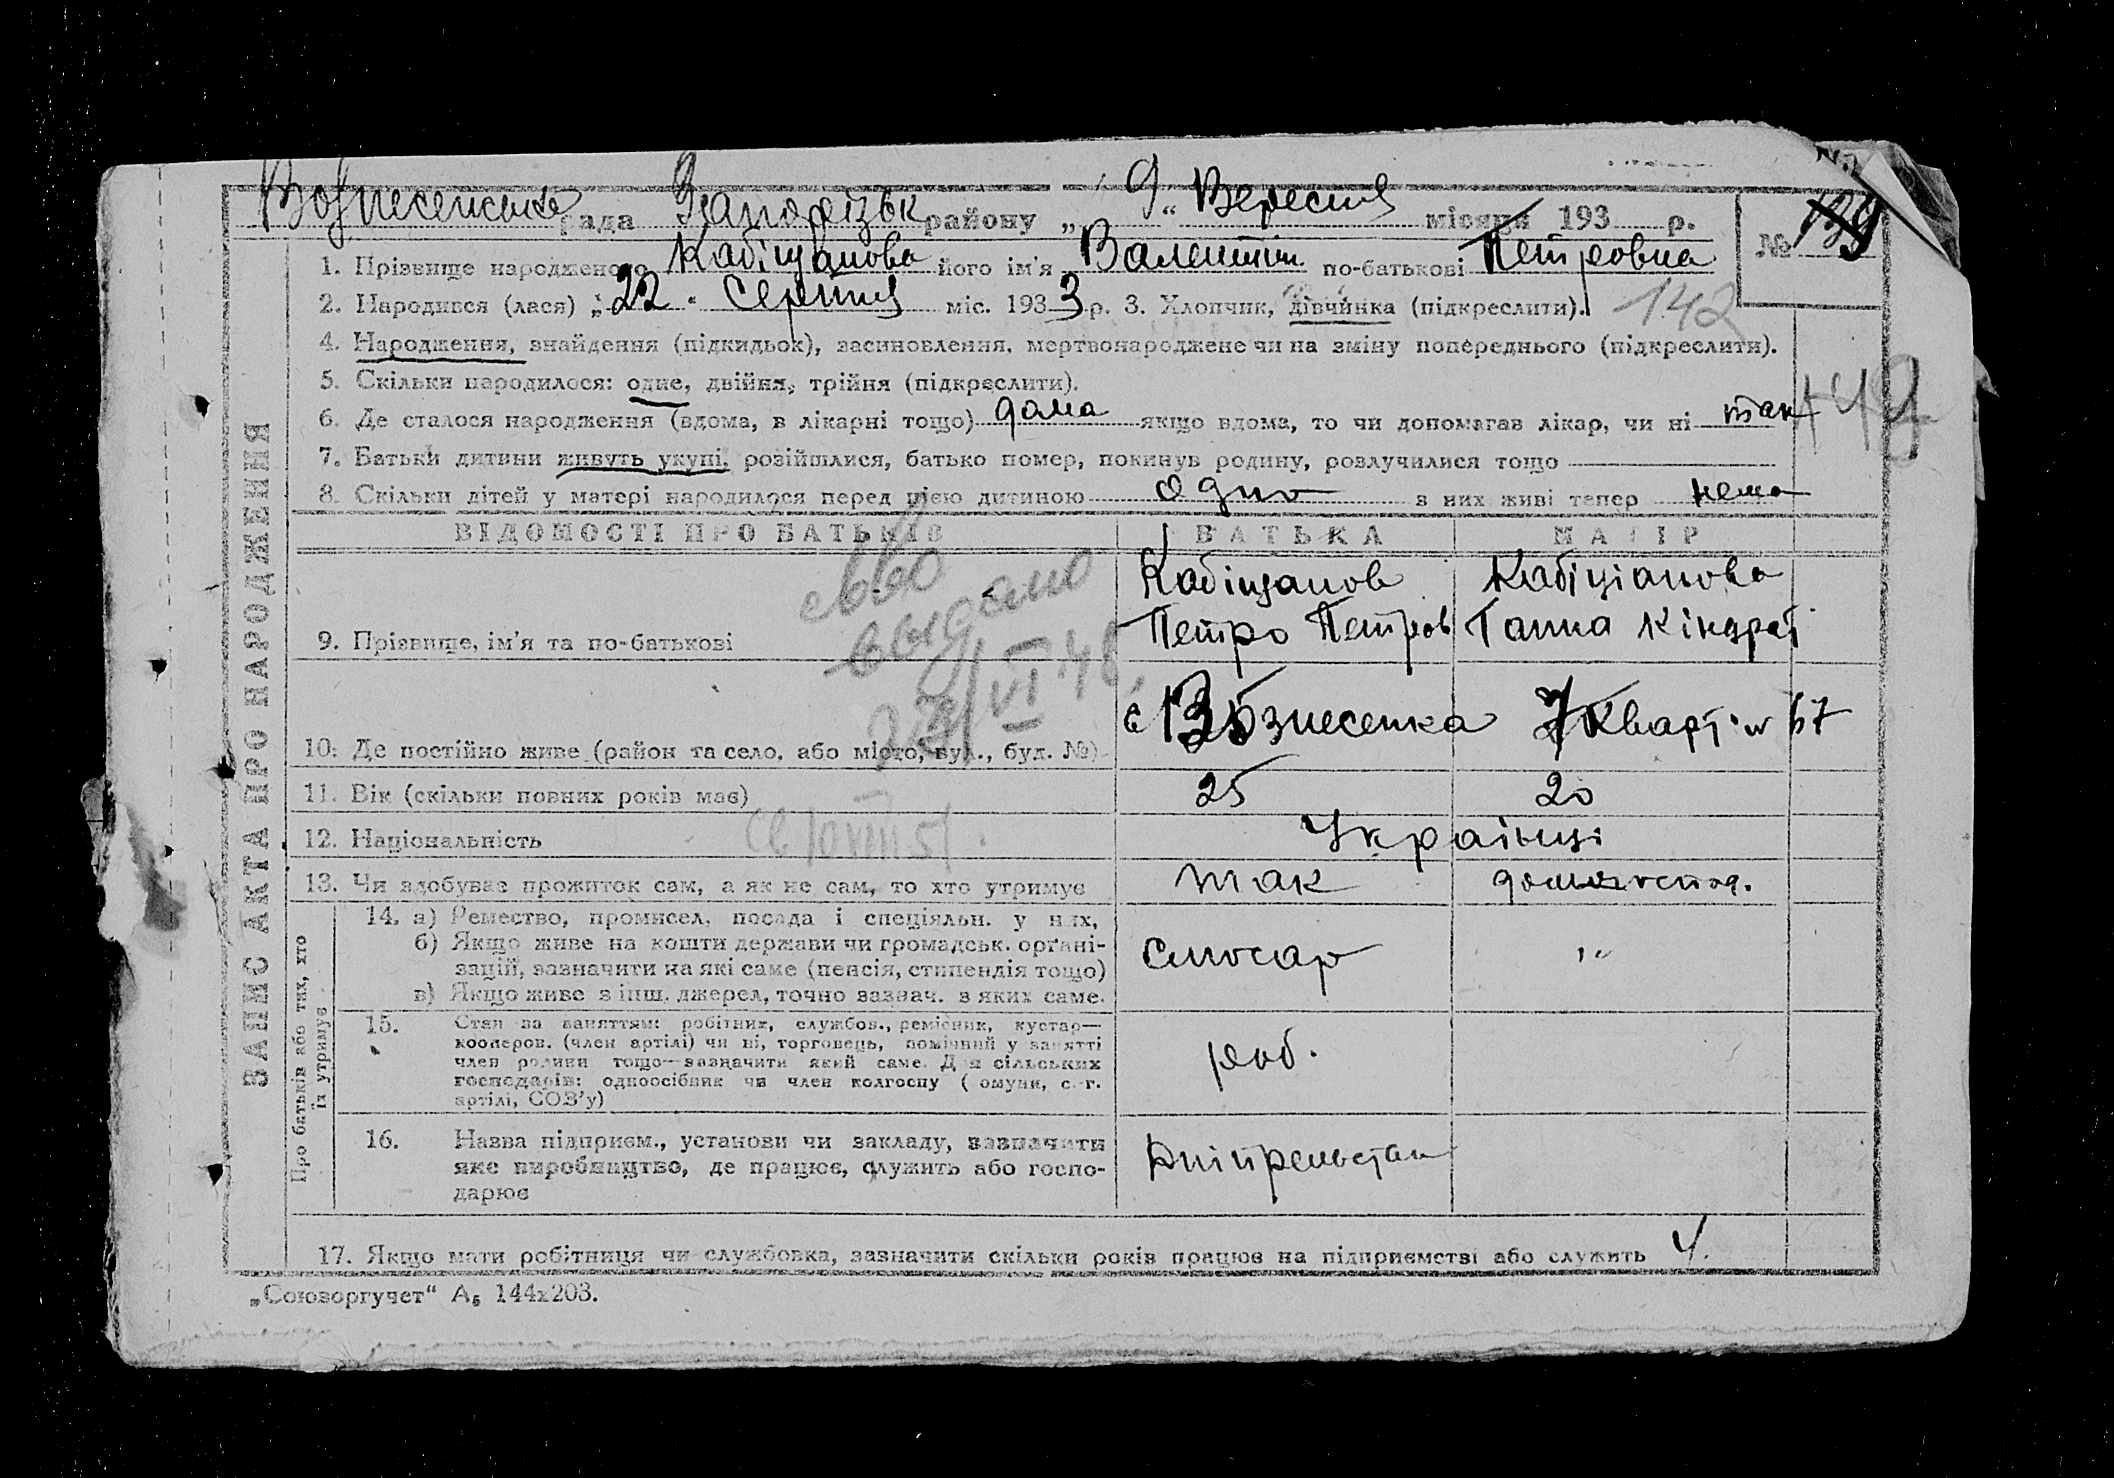 Вознесенська рада Запорізьк району „9“ Вересня місяця 193 р.
№ 139
1. Прізвище народженого Кабіцанова його ім'я Валентин. по-батькові Петровна
2. Народився (лася) „22“ Серпня міс. 1933 р. 3. Хлопчик, дівчинка (підкреслити).
142
4. Народження, знайдення (підкидьок), засиновлення, мертвонароджене чи на зміну попереднього (підкреслити).
5. Скільки народилося: одне, двійня, трійня (підкреслити).
6. Де сталося народження (вдома, в лікарні тощо) дома якщо вдома, то чи допомагав лікар, чи ні так
7. Батьки дитини живуть укупі, розійшлися, батько помер, покинув родину, розлучилися тощо
8. Скільки дітей у матері народилося перед цією дитиною одно з них живі тепер нема
ВІДОМОСТІ ПРО БАТЬКІВ БАТЬКА МАТІР
9. Прізвище, ім'я та по-батькові
Кабіцанов
Петро Петров
Кабіціанова
Ганна Кіндрат
св-во
выдано
VI 48
10. Де постійно живе (район та село, або місто, вул., буд. №) с Вознесенка 7 Кварт. 67
11. Вік (скільки повних років має) 25 20
12. Національність Українці
13. Чи здобуває прожиток сам, а як не сам, то хто утримує так домогоспод.
Про батьків або тих, хто їх утримує
14. а) Ремество, промисел, посада і спеціяльн. у них,
б) Якщо живе на кошти держави чи громадськ. орґані-
зацій, зазначити на які саме (пенсія, стипендія тощо)
в) Якщо живе з інш. джерел, точно зазнач. з яких саме.
Слюсар "
15. Стан за заняттям: робітник, службов., ремісник, кустар—
кооперов. (член артілі) чи ні, торговець, помічний у занятті
член родини тощо—зазначити який саме. Для сільських
господарів: одноосібник чи член колгоспу ( омуни, с.-г.
артілі, СОЗ'у)
роб.
16. Назва підприєм., установи чи закладу, зазначити
яке виробництво, де працює, служить або госпо-
дарює
Дніпрельстан
17. Якщо мати робітниця чи службовка, зазначити скільки років працює на підприємстві або служить
ЗАПИС АКТА ПРО НАРОДЖЕННЯ
„Союзоргучет“ А₅ 144x203.